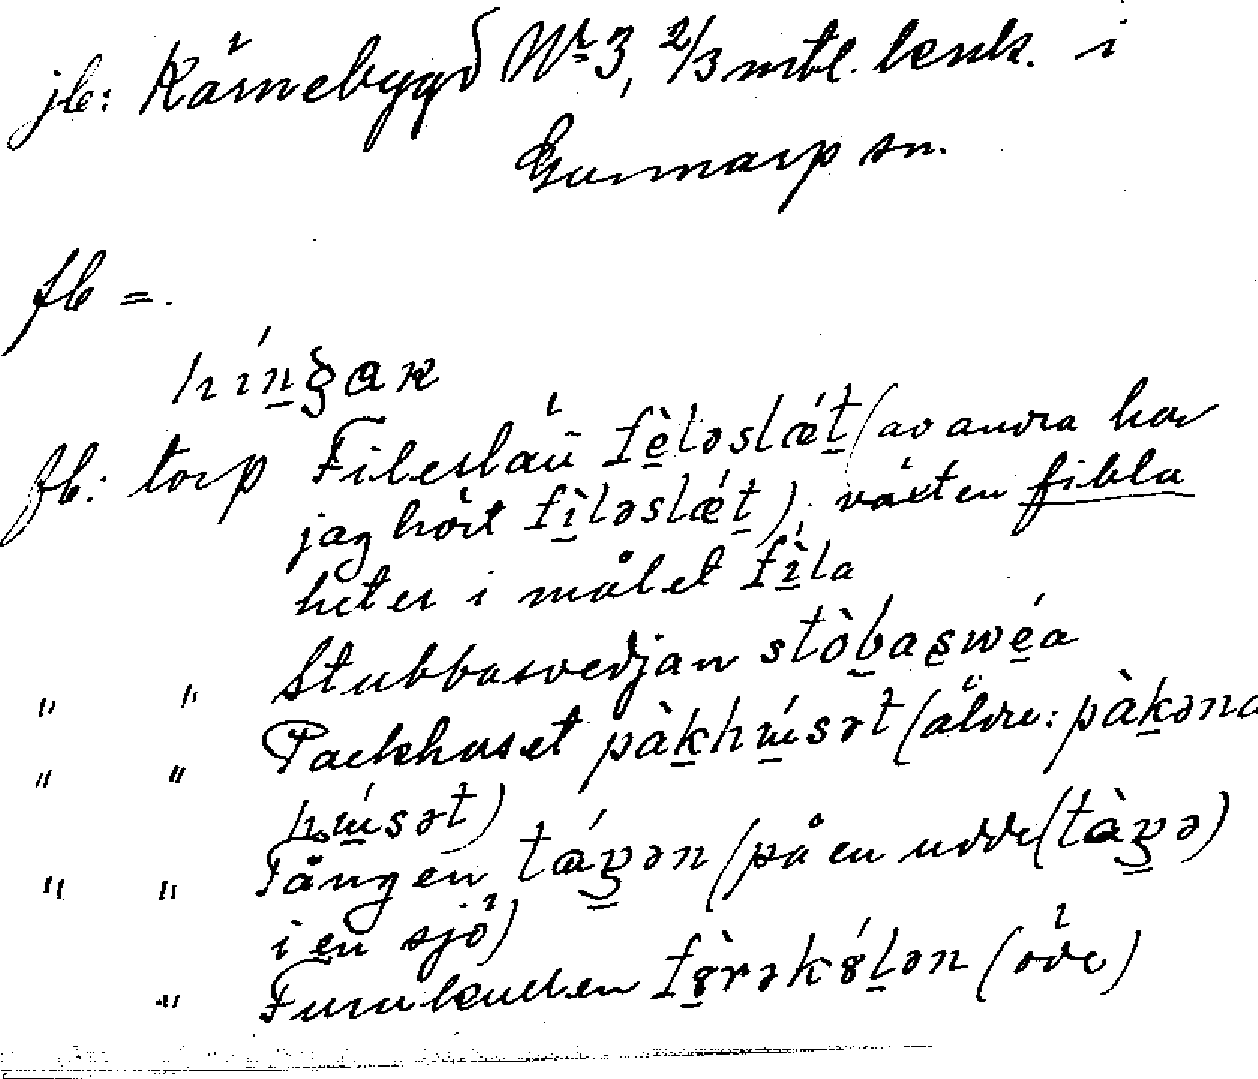 jb: Kärnebygd No 3, 2/3 mtl. kr.sk. i
Gunnarp sn.
fb =.
fb: torp Fileslätt fè̱ləslǽṯ (av andra har
jag hört fì̱ləslǽṯ), växten fibla
heter i målet fì̱la
" " Stubbasvedjan stòḇas̱wé̱a
" " Packhuset pàḵhɯ̱́sət (äldre: pàḵəna
hɯ̱́sət)
" " Tången táŋ̱ən (på en udde (tàŋ̱ə)
i en sjö)
" Furukullen (öde)